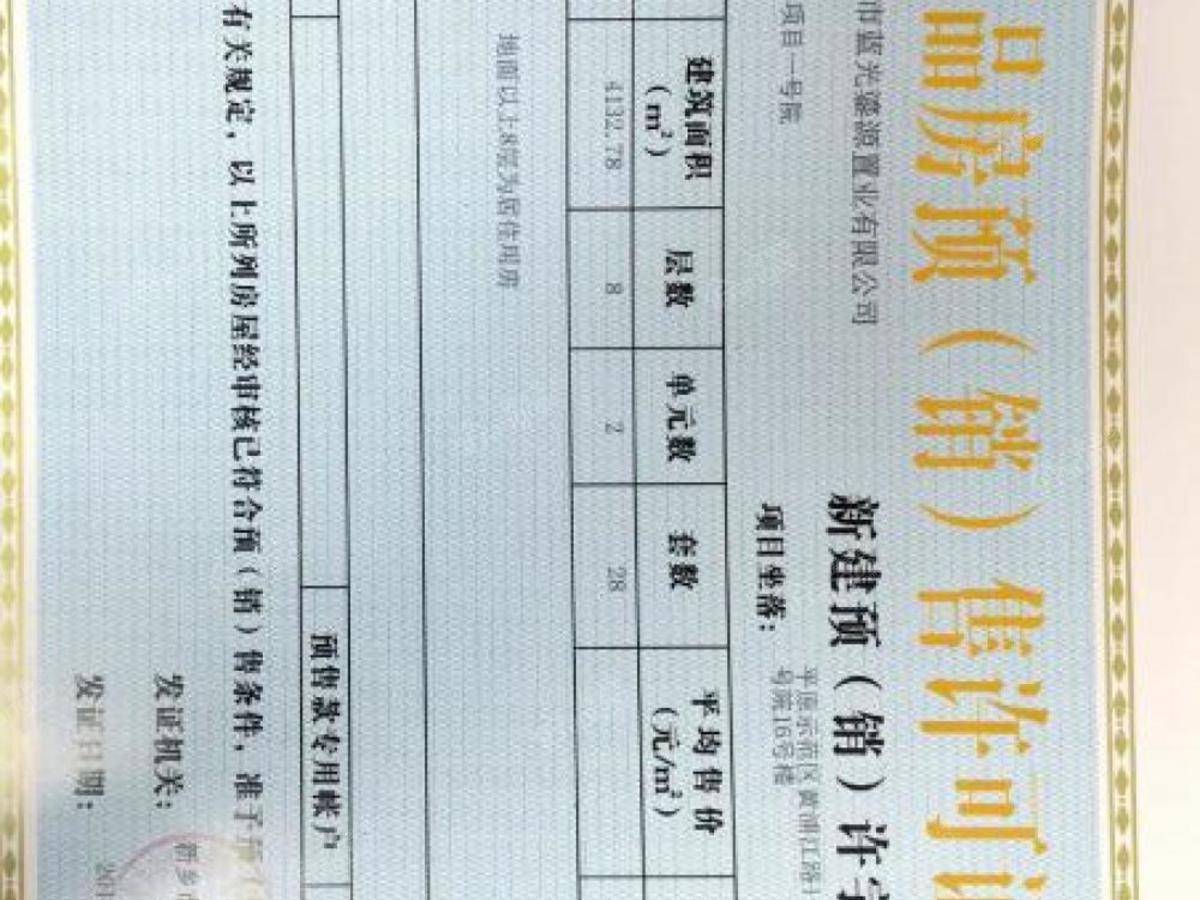 品房预（销）售许可证
新建预（销）许字
市蓝光鎏源置业有限公司
项目坐落：
平原示范区黄浦江路1
项目一号院
号院16号楼
建筑面积（m²） 层数 单元数 套数 平均售价（元/m²）
4132.78 8 2 28
地面以上8层为居住用房
预售款专用帐户
有关规定，以上所列房屋经审核已符合预（销）售条件，准予预
发证机关：
新乡
发证日期：
201